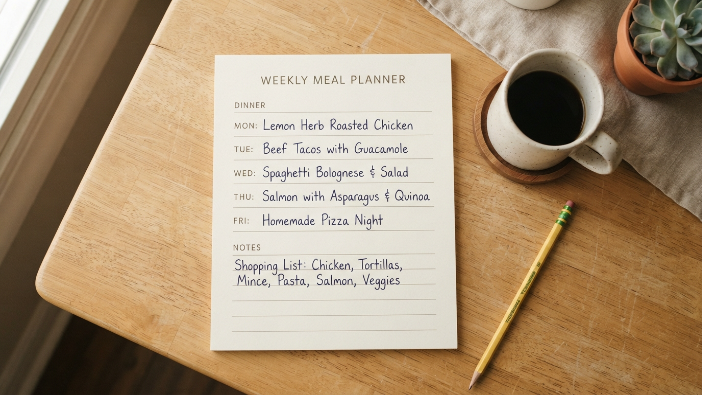 WEEKLY MEAL PLANNER
DINNER
MON: Lemon Herb Roasted Chicken
TUE: Beef Tacos with Guacamole
WED: Spaghetti Bolognese & Salad
THU: Salmon with Asparagus & Quinoa
FRI: Homemade Pizza Night
NOTES
Shopping List: Chicken, Tortillas,
Mince, Pasta, Salmon, Veggies